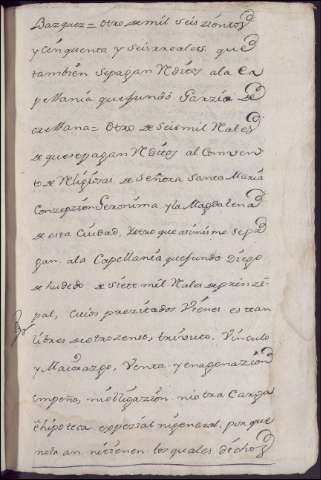 Bazquez = Otro de mil seiszientos
y cinquenta y seis reales, que
también se pagan Rditos ala Ca
pellania que fundó Garzia de
= Otro de seismil Rales
de que se pagan Rditos al Convento
de Religiosas de Señora Santa María
Conzepzion Geronima y la Magdalena
de esta Ciudad, Yotro que asimismo se pa
gan. ala Capellania que fundo Diego
de de siete mil Rales de prinzi
pal, Cuios prezitados Vienes estan
libres de otro zenso, trivuto, Vinculo
y Maiorazgo, Venta y enagenazion
empeño, ni obligazion. ni otra Carga
e hipoteca espezial ni general, por que
nola an. ni tienen. los quales dichos